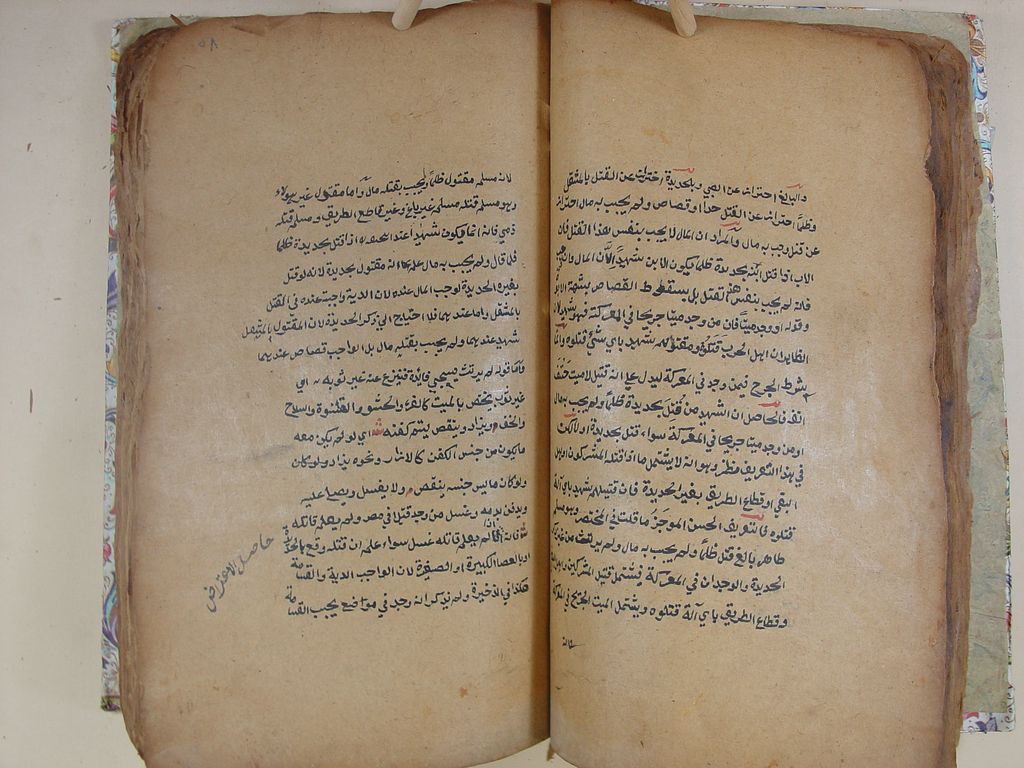 والبالغ احتراز عن الصبي وبحديدة احتراز عن القتل بالمثقل
وظلما احتراز عن القتل حدا او قصاص ولم يجب به مال احتراز
عن قتل وجب به مال والمراد ان المال لا يجب بنفس هذا القتل فان
الاب اذا قتل ابنه بحديدة ظلما يكون الابن شهيدا لان المال وان وجب
فانه لم يجب بنفس هذا القتل بل بسقوط القصاص بشبهة الابوة
وقوله او وجد ميتا فان من وجد ميتا جريحا في المعركة فهو شهيد لان
الظاهر ان اهل الحرب قتلوه ومقتولهم شهيد باي شيء قتلوه وانما
يشرط الجرح فيمن وجد في المعركة ليدل على انه قتيل لا ميت حتف
انفه فالحاصل ان الشهيد من قتل بحديدة ظلما ولم يجب به مال
او من وجد ميتا جريحا في المعركة سواء قتل بحديدة او لا لكن
في هذا التعريف نظر وهو انه لا يشتمل ما اذا قتله المشركون او اهل
البغي او قطاع الطريق بغير الحديدة فان قتيلهم شهيد باي آلة
قتلوه فالتعريف الحسن الموجز ما قلت في المختصر وهو مسلم
طاهر بالغ قتل ظلما ولم يجب به مال ولم يرتث من غير ذكر
الحديدة والوجدان في المعركة فيشتمل قتيل المشركين واهل البغي
وقطاع الطريق باي آلة قتلوه ويشتمل الميت الجريح في المعركة
٥٨
لانه مسلم مقتول ظلما ولم يجب بقتله مال واما مقتول غير هولاء
وهو مسلم قتله مسلم غير باغ وغير قاطع الطريق ومسلم قتله
ذمي فانه انما يكون شهيدا عند ابي حنيفة اذا قتل بحديدة ظلما
فلما قال ولم يجب به مال علم انه مقتول بحديدة لانه لو قتل
بغير الحديدة لوجب المال عنده لان الدية واجبة عنده في القتل
بالمثقل واما عندهما فلا احتياج الى ذكر الحديدة لان المقتول بالمثقل
شهيد عندهما ولم يجب بقتله مال بل الواجب قصاص عندهما
واما قوله لم يرتث فسيجيء فائدته فينزع عنه غير ثوبه اي
غير ثوب يختص بالميت كالفرو والحشو والقلنسوة والسلاح
والخف ويزاد وينقص ليتم كفنه اي لو لم يكن معه
ما يكون من جنس الكفن كالازار ونحوه يزاد ولو كان
ولو كان ما ليس جنسه ينقص ولا يغسل ويصلى عليه
ويدفن بدمه وغسل من وجد قتيلا في مصر ولم يعلم قاتله
فانه اذا لم يعلم قاتله غسل سواء علم ان قتله وقع بالحديدة
او بالعصا الكبيرة او الصغيرة لان الواجب الدية والقسامة
هكذا في الذخيرة ولم يذكر انه وجد في مواضع يجب القسامة
حاصل الاعتراض